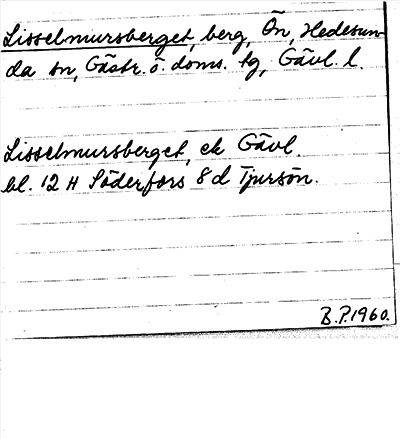 Lisselmursberget, berg, Ön, Hedesun-
da sn, Gästr. ö. doms. tg, Gävl. l.
Lisselmursberget, ek Gävl.
bl. 12 H Söderfors 8 d Tjursön.
B.P. 1960.